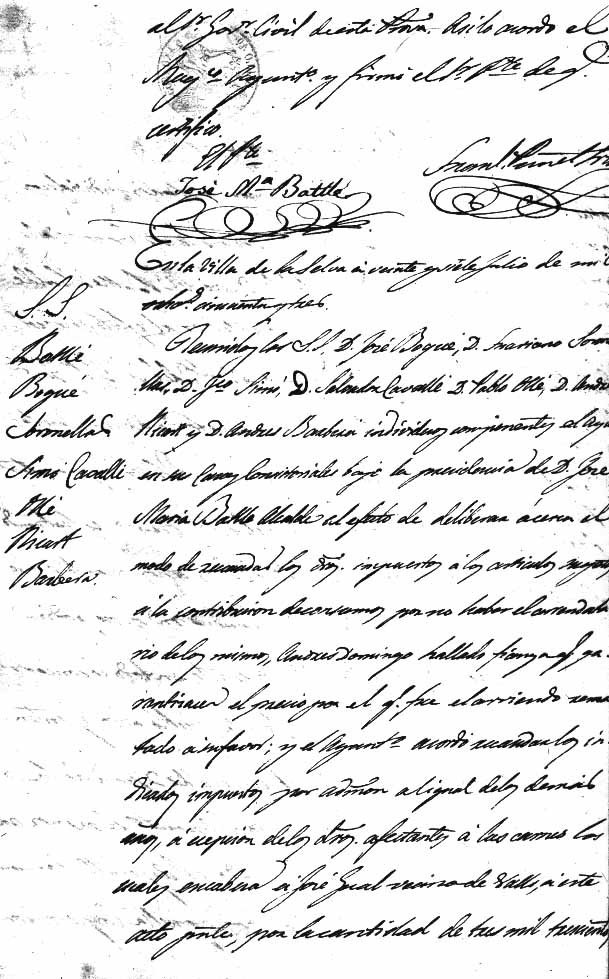 al Sr. Gov.r Civil de esta Prov.a Asi lo acordó el
Muy Ye. Ayunt.o y firmó el Sr. Pte. de q.
certifico.
El Pte.
José M.a Batllé
En la Villa de la Selva á veinte y siete Julio de mil
ocho.s cincuenta y tres.
Reunidos los S.S. D. José Bogué, D. Mariano
D. Fco. Simó, D. Salvador Cavallé D. Pablo Ollé, D. Andres
Nicart y D. Andres Barberá individuos componentes el Ayu
en sus Casas Consistoriales bajo la presidencia de D. José
Maria Batlle Alcalde al efecto de deliberar acerca el
modo de recaudar los dros. impuestos á los articulos sugetos
á la contribucion de consumos por no haber el arrendata
rio de los mismos, Andres Domingo hallado fianza q. ga-
rantizase el precio por el q. fue el arriendo rema
tado a su favor; y el Ayunt.o acordó recaudar los in-
dicados impuestos por admon al igual de los demas
años, á escepcion de los dros. afectantes á las carnes los
cuales encabezó á José Gual vecino de Valls, á este
acto pnte., por la cantidad de tres mil trescientos
S.S.
Batllé
Bogué
Coronellas
Simo Cavallé
Ollé
Nicart
Barbera.